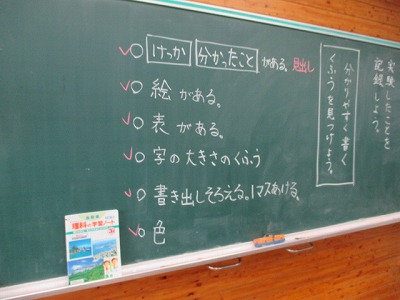 実験したことを
記録しよう。
分かりやすく書く
くふうを見つけよう。
○ けっか 分かったこと がある。見出し
○ 絵がある。
○ 表がある。
○ 字の大きさのくふう
○ 書き出しそろえる。1マスあける。
○ 色
理科の学習ノート